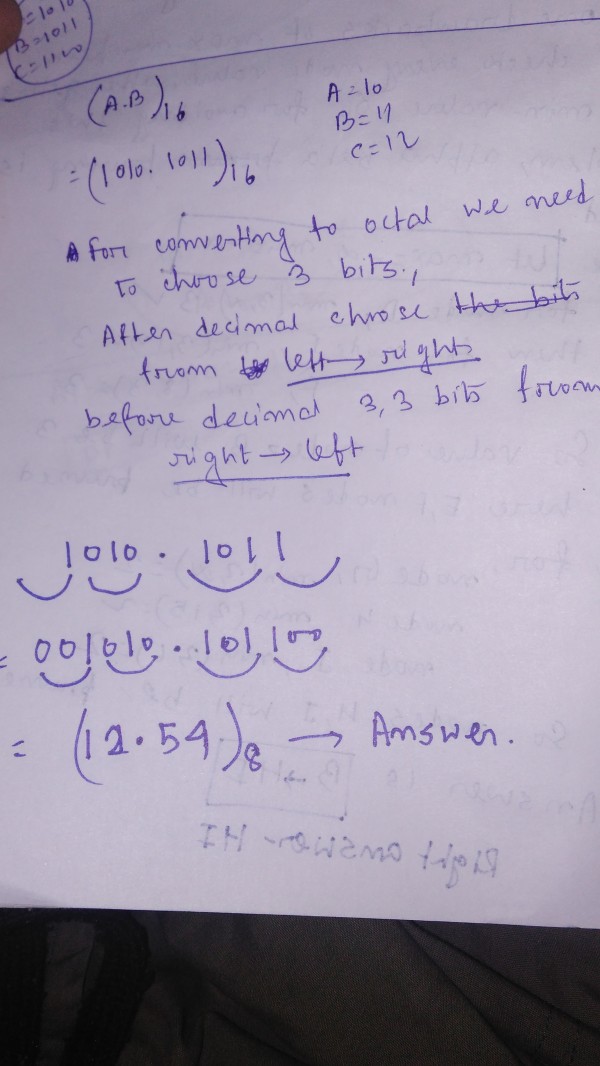 =1010
B=1011
C=1100
(A.B)16
A=10
B=11
C=12
=(1010.1011)16
For converting to octal we need
to choose 3 bits.,
After decimal choose the bits
from left→right
before decimal 3,3 bits from
right→left
1010.1011
=001010.101,100
=(12.54)8 → Answer.
Right answer-HI